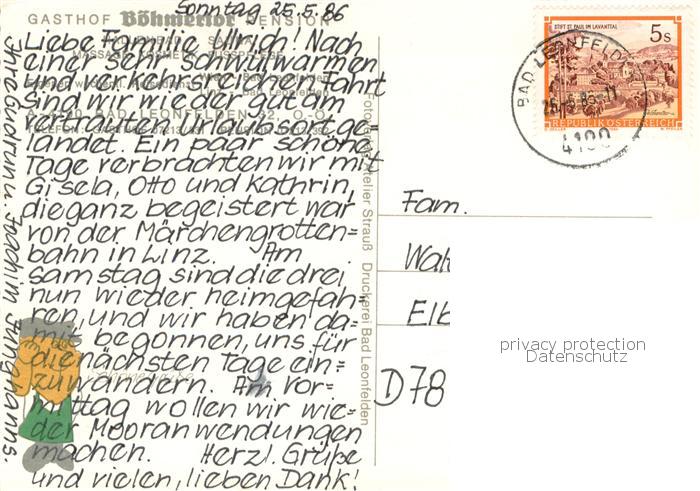 Sonntag 25.5.86
GASTHOF Böhmertor PENSION
Liebe Familie Ullrich! Nach
einer sehr schwülwarmen
und verkehrsreichen Fahrt
sind wir wieder gut am
vertrauten Urlaubsort ge=
landet. Ein paar schöne
Tage verbrachten wir mit
Gisela, Otto und Kathrin,
die ganz begeistert war
von der Märchengrotten=
bahn in Linz. Am
Samstag sind die drei
nun wieder heimgefah=
ren, und wir haben da=
mit begonnen, uns für
die nächsten Tage ein=
zuwandern. Am Vor=
mittag wollen wir wie=
der Mooranwendungen
machen. Herzl. Grüße
und vielen, lieben Dank!
Ihre Gudrun u. Joachim Jungmanns.
A-4190 BAD LEONFELDEN 32, O.Ö.
Atelier Strauß Druckerei Bad Leonfelden
STIFT ST. PAUL IM LAVANTTAL
5s
REPUBLIK ÖSTERREICH
BAD LEONFELDEN
4190
Fam.
Wah
Elb
D78
privacy protection
Datenschutz